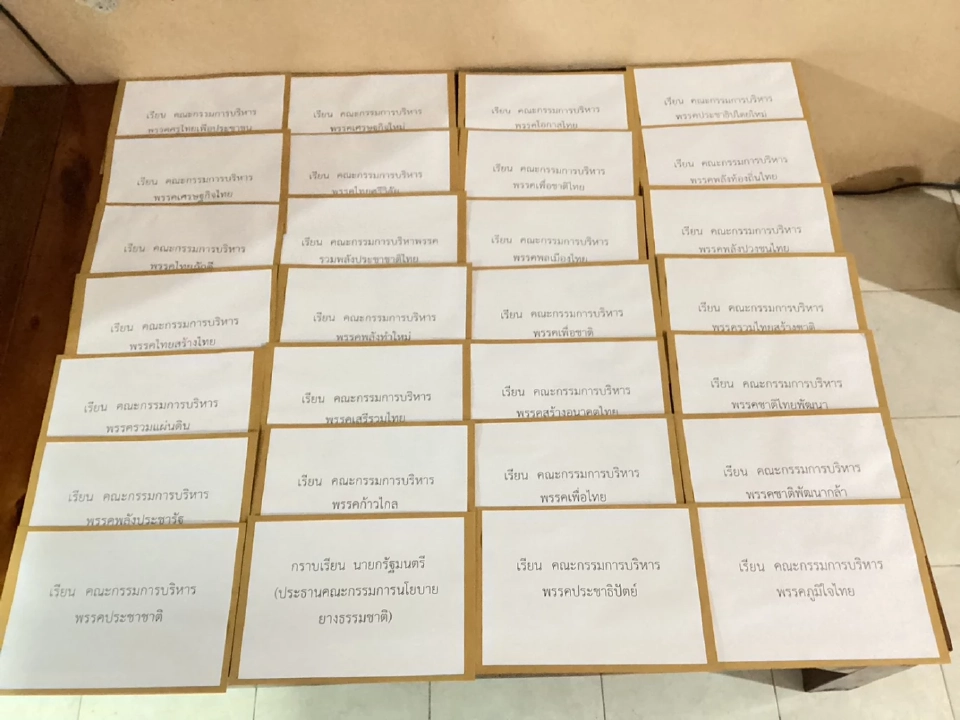 เรียน คณะกรรมการบริหาร
พรรคครูไทยเพื่อประชาชน
เรียน คณะกรรมการบริหาร
พรรคเศรษฐกิจใหม่
เรียน คณะกรรมการบริหาร
พรรคโอกาสไทย
เรียน คณะกรรมการบริหาร
พรรคประชาธิปไตยใหม่
เรียน คณะกรรมการบริหาร
พรรคเศรษฐกิจไทย
เรียน คณะกรรมการบริหาร
พรรคไทยศรีวิลัย
เรียน คณะกรรมการบริหาร
พรรคเพื่อชาติไทย
เรียน คณะกรรมการบริหาร
พรรคพลังท้องถิ่นไทย
เรียน คณะกรรมการบริหาร
พรรคไทยภักดี
เรียน คณะกรรมการบริหาพรรค
รวมพลังประชาชาติไทย
เรียน คณะกรรมการบริหาร
พรรคพลเมืองไทย
เรียน คณะกรรมการบริหาร
พรรคพลังปวงชนไทย
เรียน คณะกรรมการบริหาร
พรรคไทยสร้างไทย
เรียน คณะกรรมการบริหาร
พรรคพลังทำใหม่
เรียน คณะกรรมการบริหาร
พรรคเพื่อชาติ
เรียน คณะกรรมการบริหาร
พรรครวมไทยสร้างชาติ
เรียน คณะกรรมการบริหาร
พรรครวมแผ่นดิน
เรียน คณะกรรมการบริหาร
พรรคเสรีรวมไทย
เรียน คณะกรรมการบริหาร
พรรคสร้างอนาคตไทย
เรียน คณะกรรมการบริหาร
พรรคชาติไทยพัฒนา
เรียน คณะกรรมการบริหาร
พรรคพลังประชารัฐ
เรียน คณะกรรมการบริหาร
พรรคก้าวไกล
เรียน คณะกรรมการบริหาร
พรรคเพื่อไทย
เรียน คณะกรรมการบริหาร
พรรคชาติพัฒนากล้า
เรียน คณะกรรมการบริหาร
พรรคประชาชาติ
กราบเรียน นายกรัฐมนตรี
(ประธานคณะกรรมการนโยบาย
ยางธรรมชาติ)
เรียน คณะกรรมการบริหาร
พรรคประชาธิปัตย์
เรียน คณะกรรมการบริหาร
พรรคภูมิใจไทย